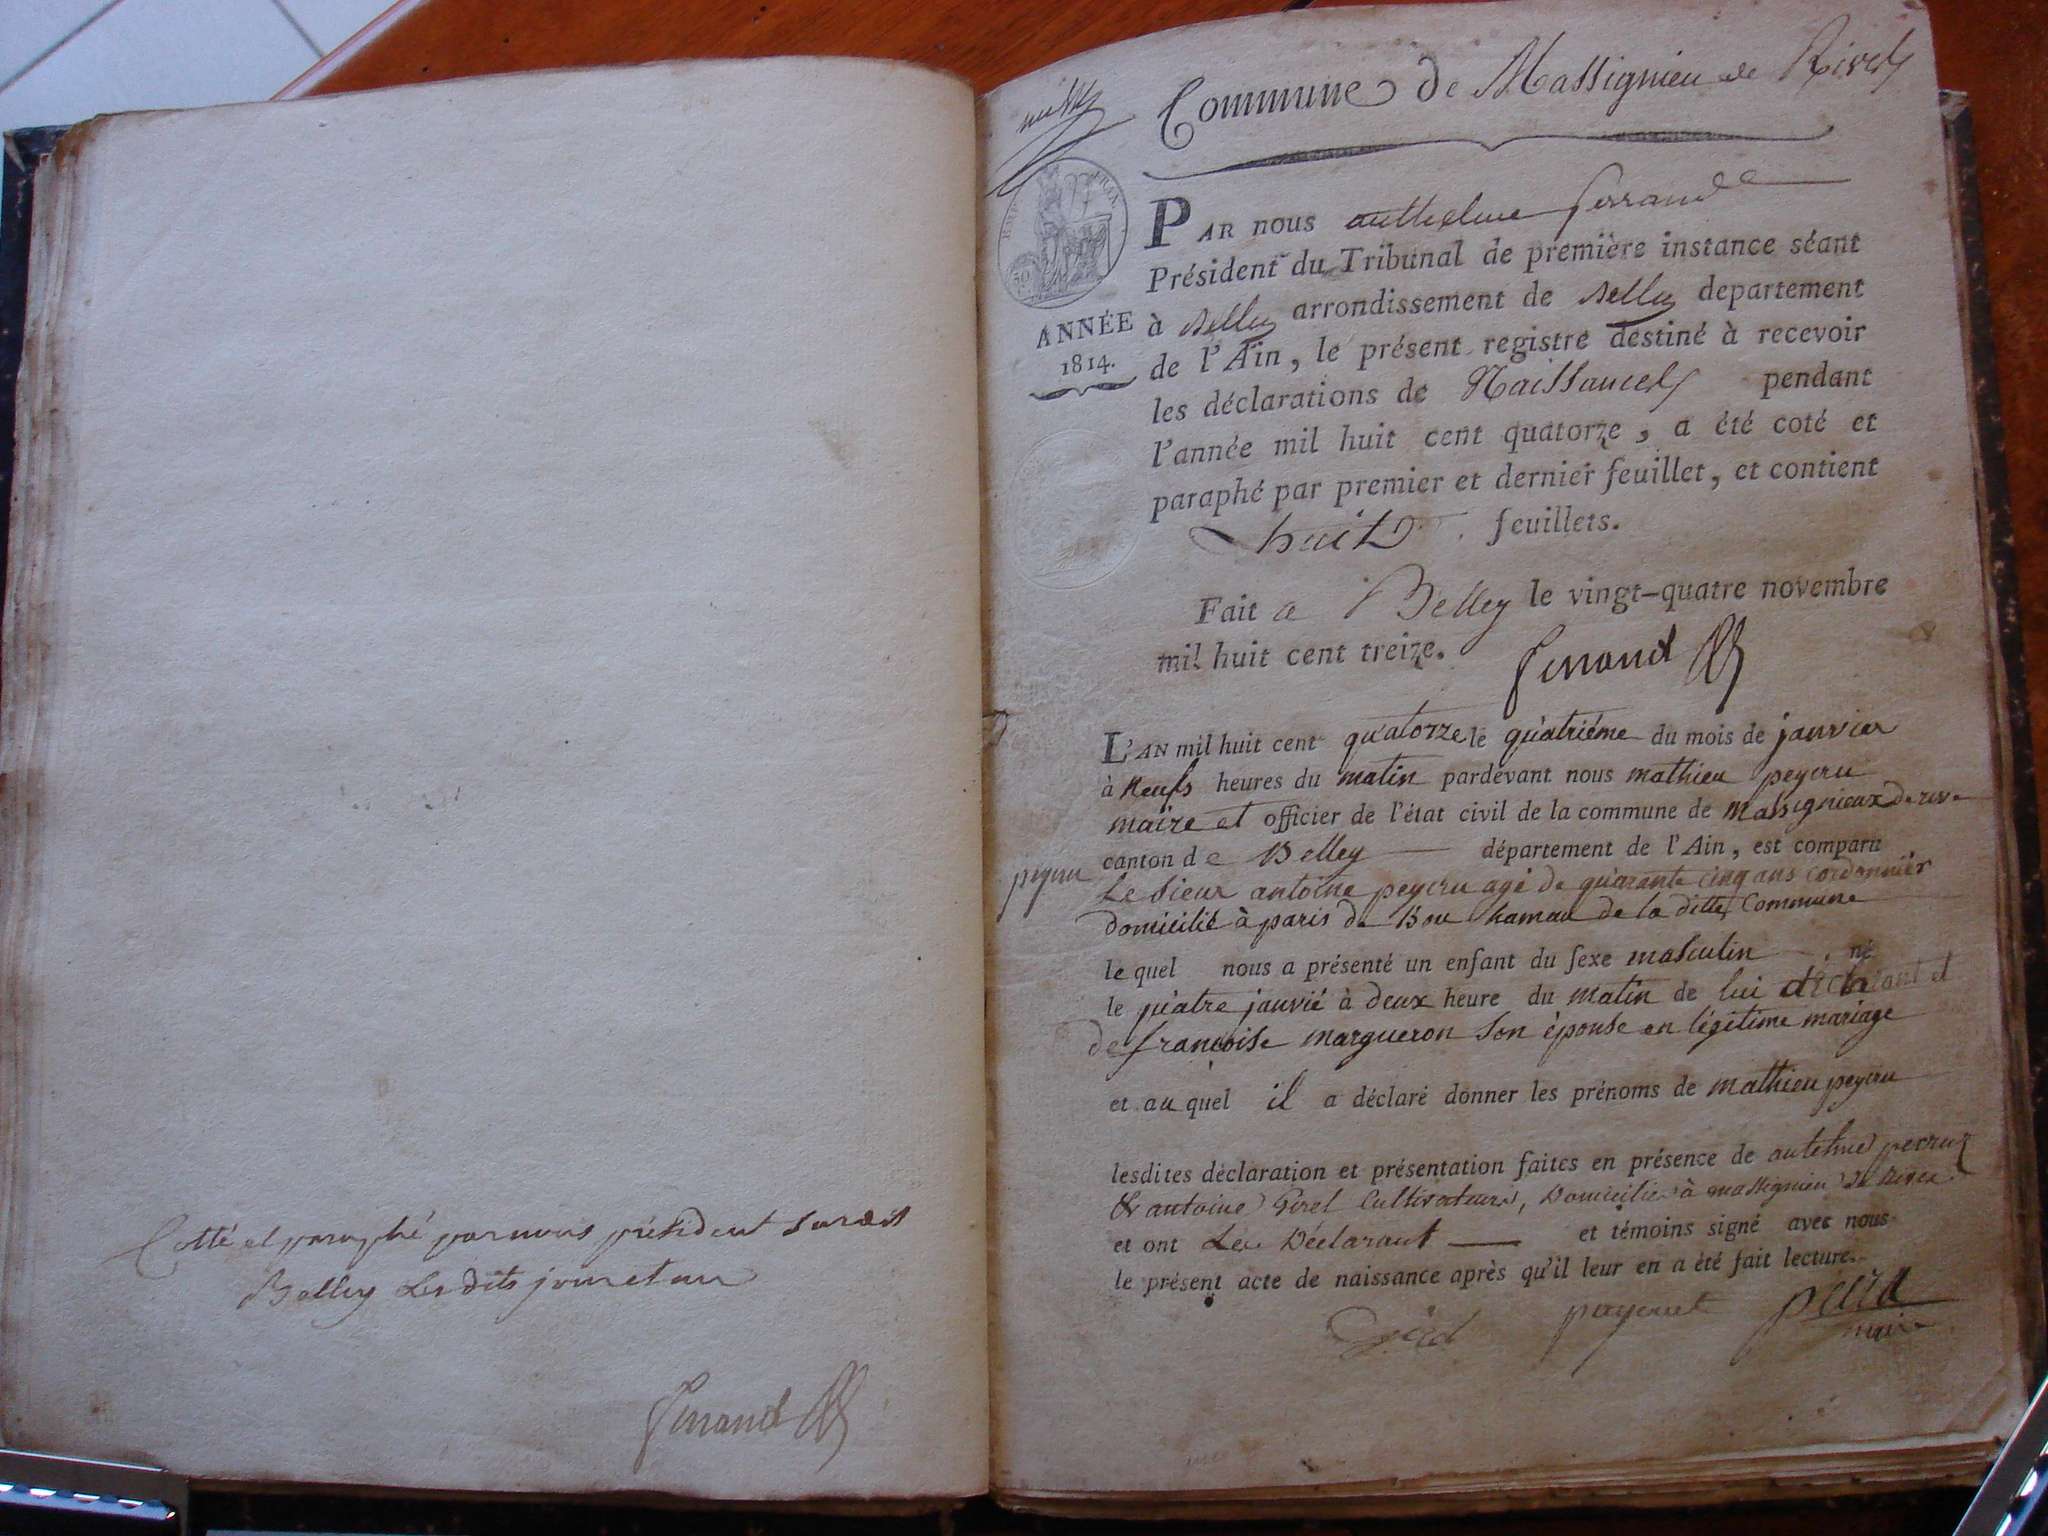 Cotté et paraphé par nous président susdit
Belley les dits jour et an
Ferrand
Commune de Massignieu de Rives
PAR nous anthelme ferrand
Président du Tribunal de première instance séant
à Belley arrondissement de Belley departement
de l'Ain, le présent registre destiné à recevoir
les déclarations de Naissances pendant
l'année mil huit cent quatorze, a été coté et
paraphé par premier et dernier feuillet, et contient
huit feuillets.
Fait a Belley le vingt-quatre novembre
mil huit cent treize. Ferrand
EMP. FRAN.
50
ANNÉE
1814.
L'AN mil huit cent quatorze le quatriéme du mois de janvier
à neufs heures du matin pardevant nous mathieu peycru
maire et officier de l'état civil de la commune de massignieux de rive
canton de Belley département de l'Ain, est comparu
peycru
Le Sieur antoine peycru agé de quarante cinq ans cordonnier
domicilié à paris de Bou hamau de la ditte Commune
le quel nous a présenté un enfant du sexe masculin né
le quatre janvié à deux heure du matin de lui déclarant et
de francoise margueron son épouse en légitime mariage
et au quel il a déclaré donner les prénoms de mathieu peycru
lesdites déclaration et présentation faites en présence de antelme
& antoine Girel Cultivateurs, Domicilié à massignieu de Rives
et ont Le Déclarant et témoins signé avec nous
le présent acte de naissance après qu'il leur en a été fait lecture.
maire